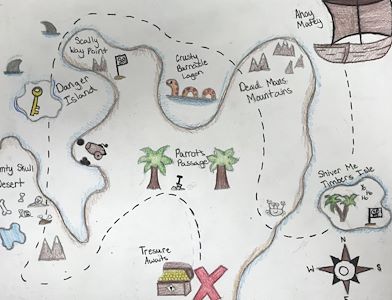 Ahoy
Matey
Scally
Way Point
Crusty
Barnacle
Lagon
Danger
Island
Dead Mans
Mountains
Parrots
Passage
Shiver Me
Timbers Isle
nty Skull
Desert
Tresure
Awaits
N
W
E
S